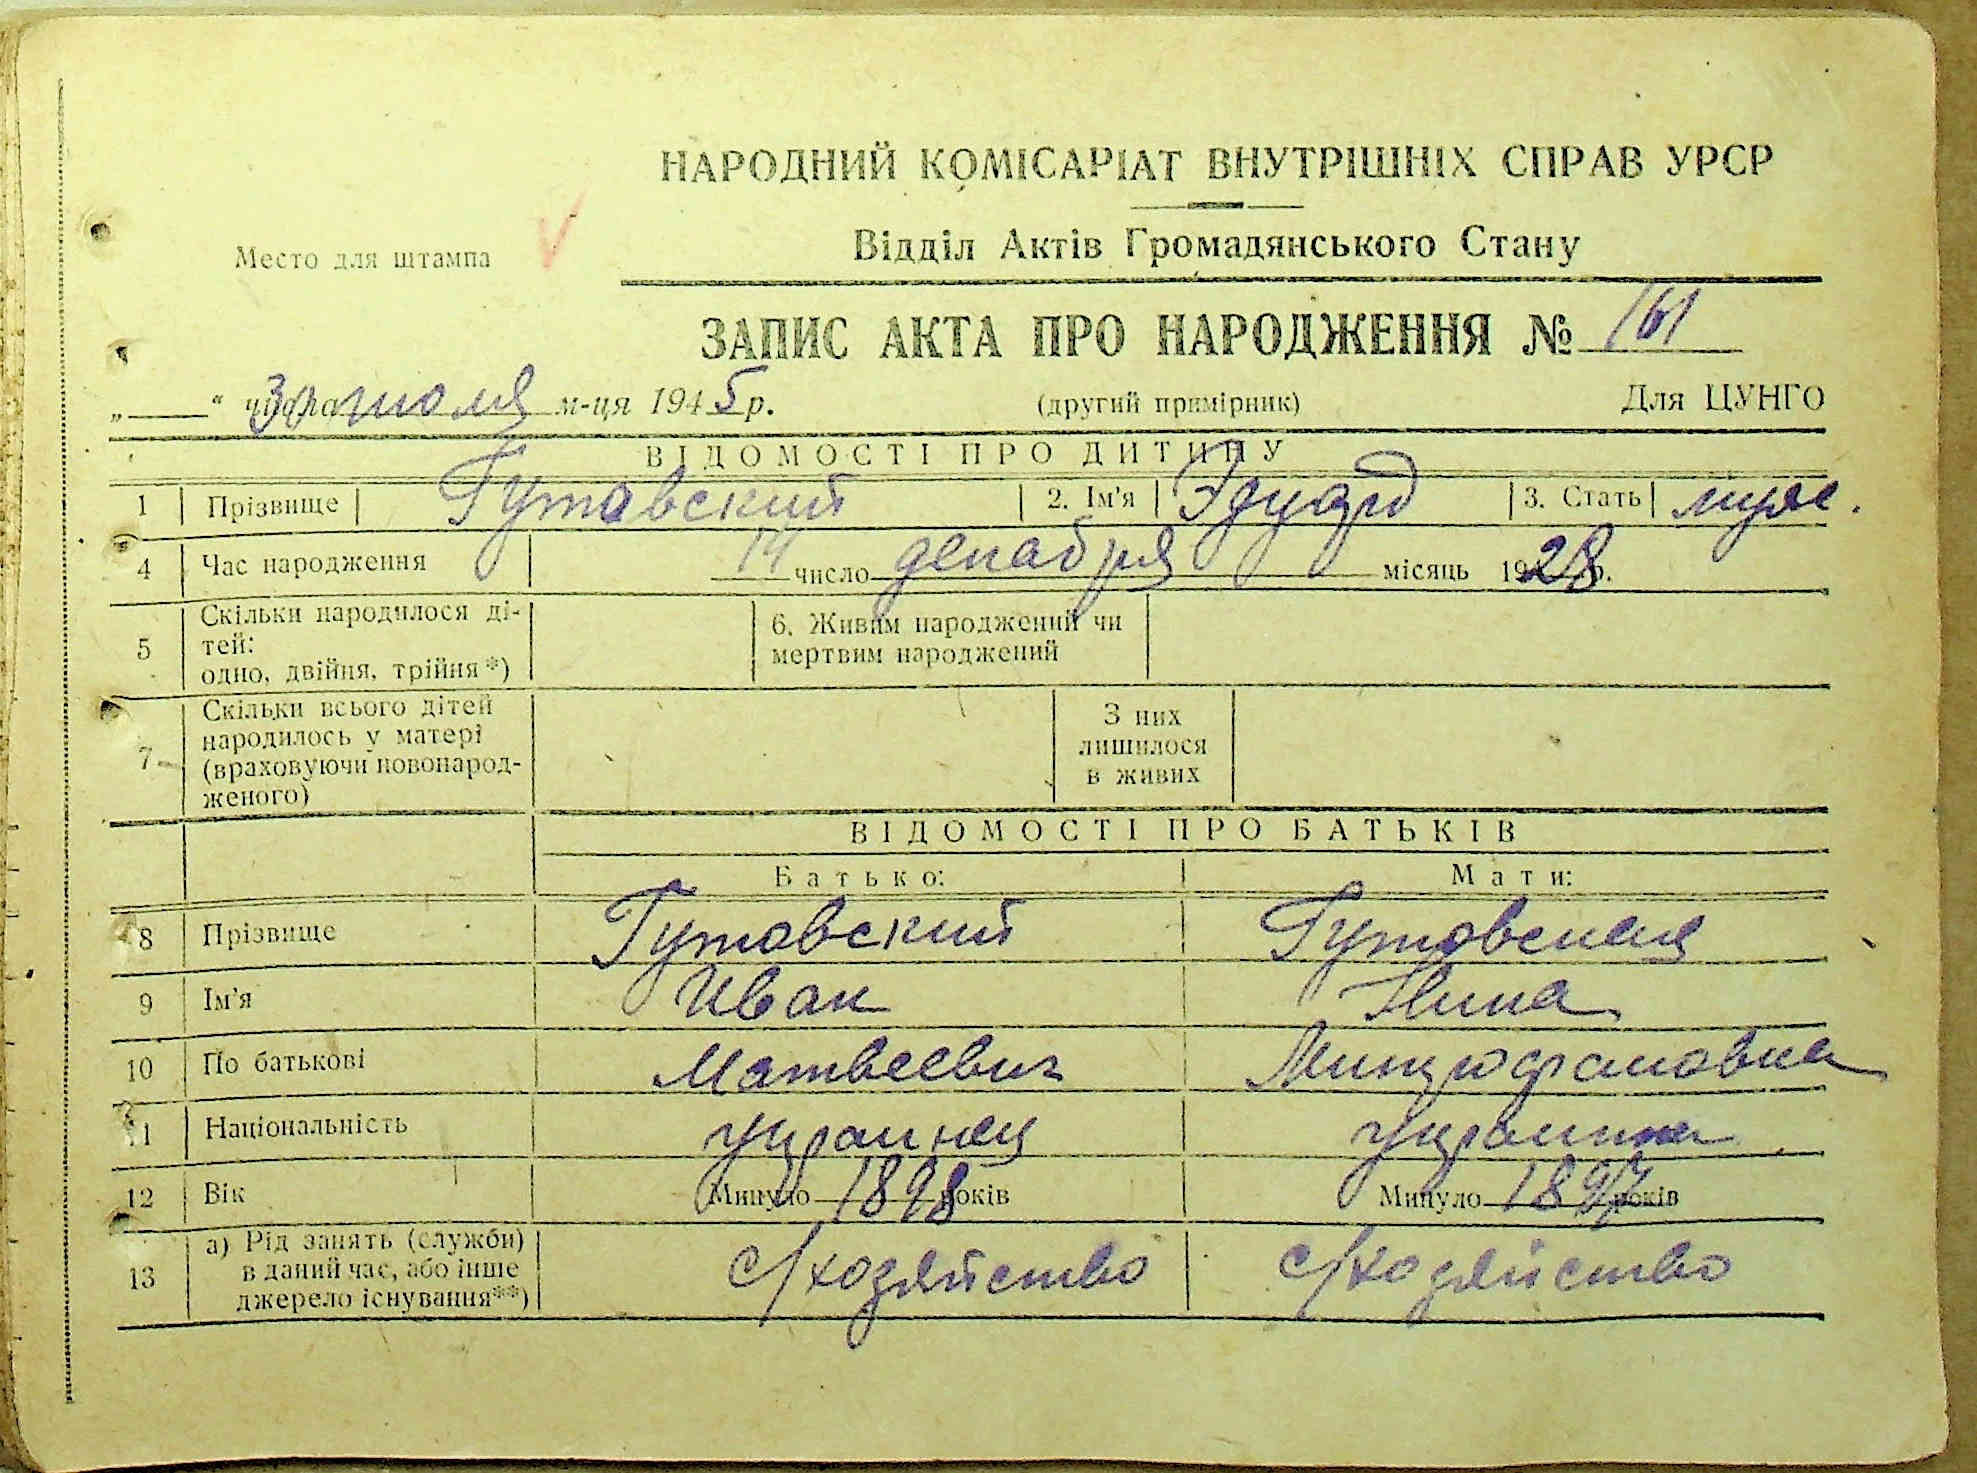 НАРОДНИЙ КОМІСАРІАТ ВНУТРІШНІХ СПРАВ УРСР
Место для штампа
Відділ Актів Громадянського Стану
ЗАПИС АКТА ПРО НАРОДЖЕННЯ № 161
„ “ числа 30 июля м-ця 1945 р. (другий примірник) Для ЦУНГО
ВІДОМОСТІ ПРО ДИТИНУ
1 Прізвище Гутовский 2. Ім'я Эдуард 3. Стать муж.
4 Час народження 14 число декабря місяць 1928 р.
5 Скільки народилося ді-
тей:
одно, двійня, трійня*)
6. Живим народжений чи
мертвим народжений
7 Скільки всього дітей
народилось у матері
(враховуючи новонарод-
женого)
З них
лишилося
в живих
ВІДОМОСТІ ПРО БАТЬКІВ
Батько: Мати:
8 Прізвище Гутовский Гутовская
9 Ім'я Иван Нина
10 По батькові Матвеевич Митрофановна
11 Національність украинец украинка
12 Вік Минуло 1898 років Минуло 1897 років
13 а) Рід занять (служби)
в даний час, або інше
джерело існування**)
с/хозяйство с/хозяйство